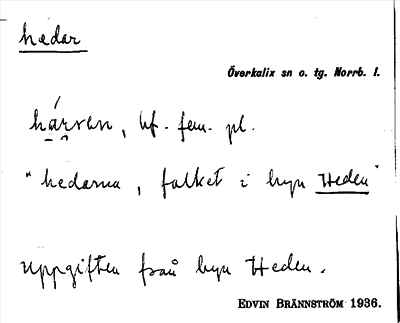 hedar
Överkalix sn o. tg. Norrb. l.
hárven, bf. fem. pl.
"hedarna, folket i byn Heden"
Uppgiften från byn Heden.
EDVIN BRÄNNSTRÖM 1936.